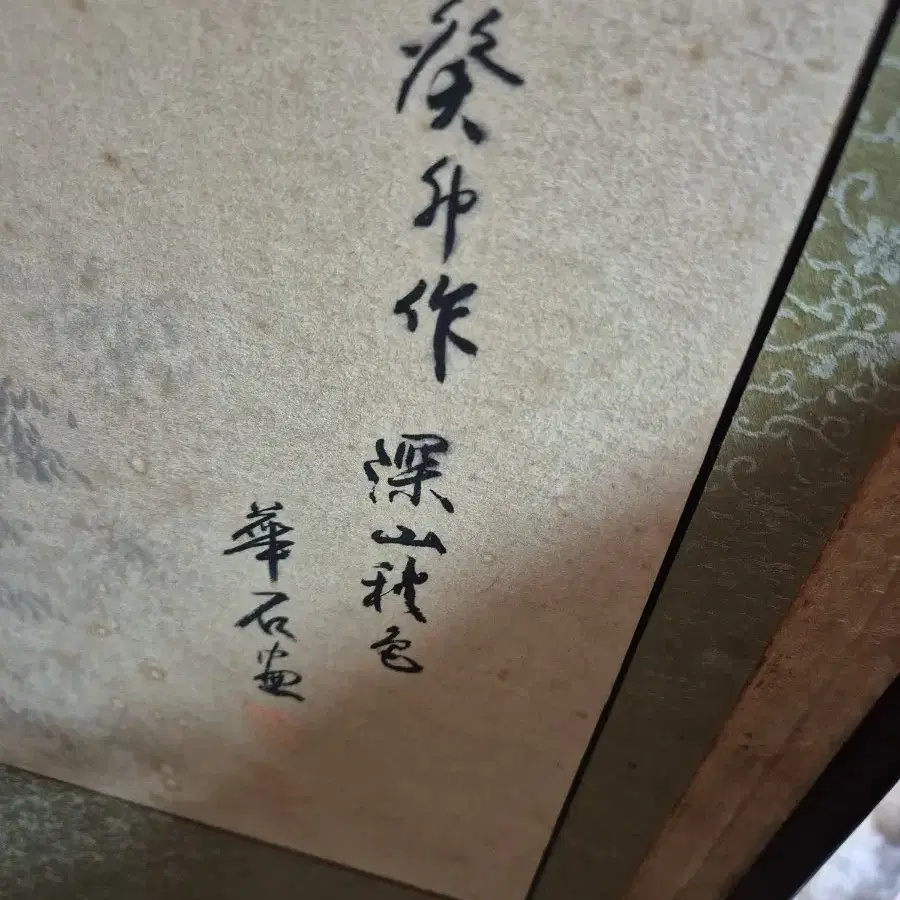 癸卯作 深山秋色
華石畫